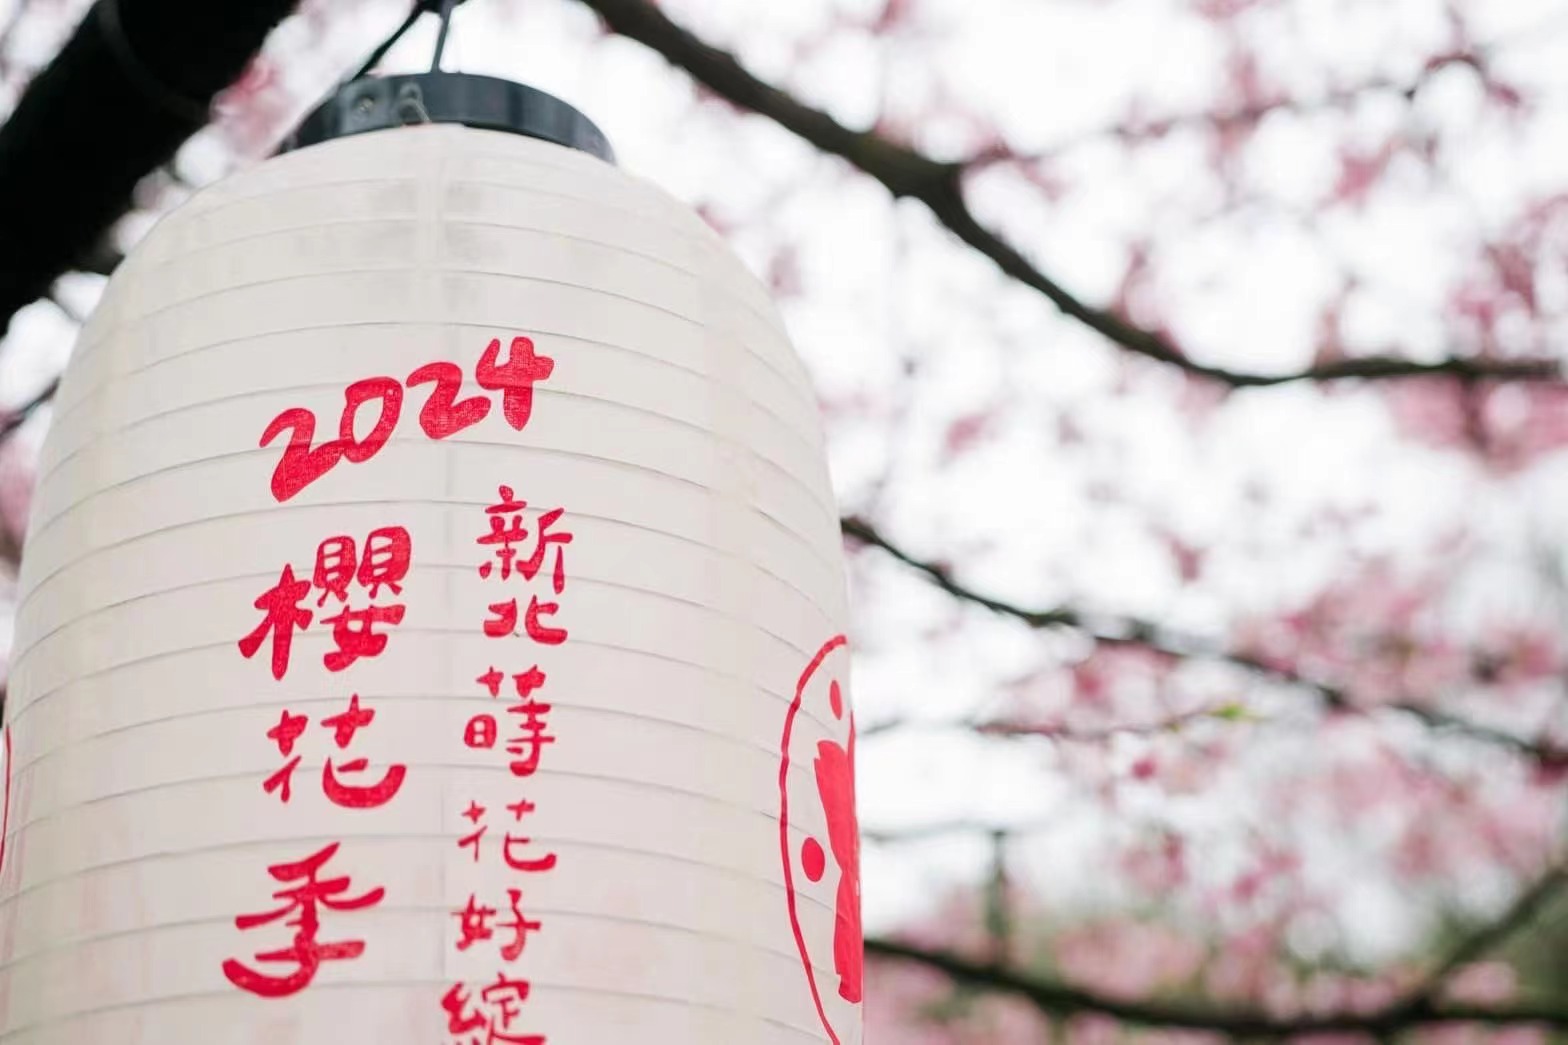 2024
櫻花季
新北蒔花好綻